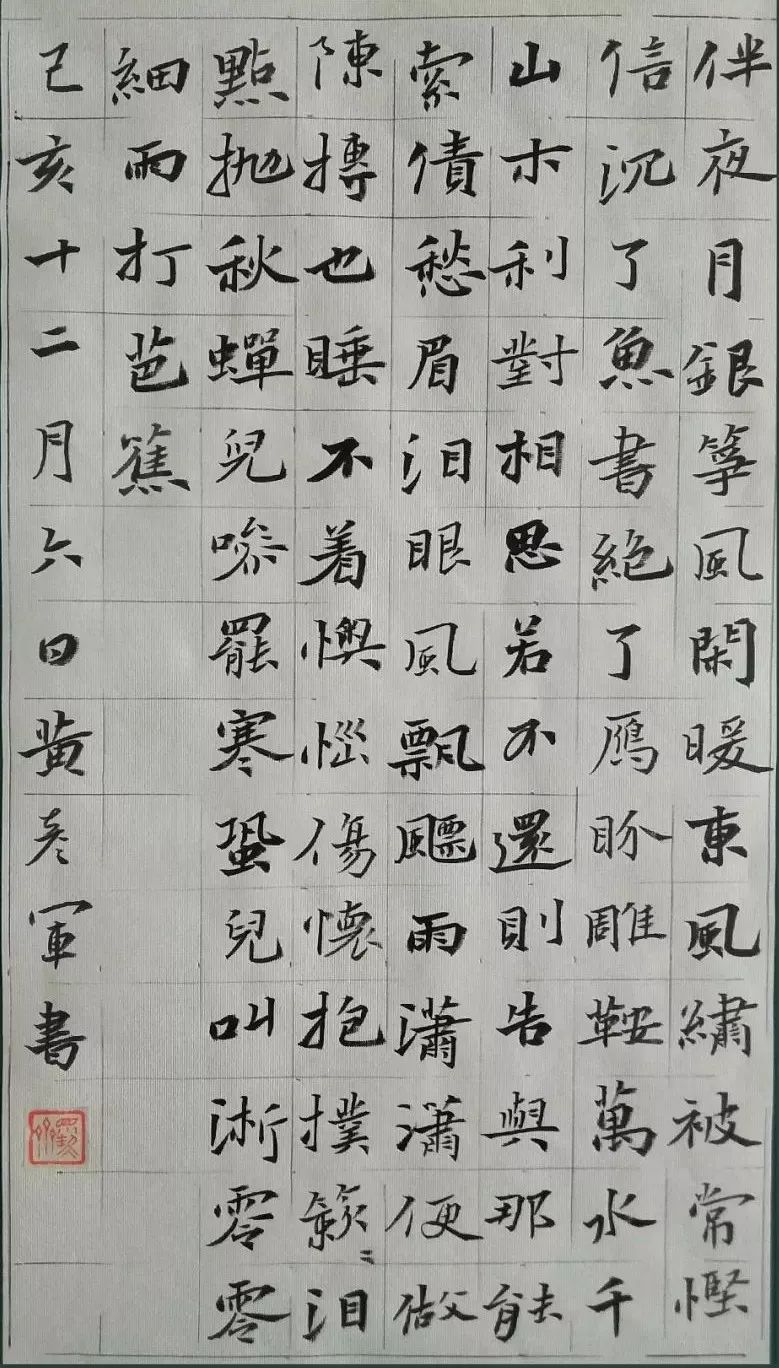 伴夜月銀箏風閑暖東風繡被常慳
信沉了魚書絕了雁盼雕鞍萬水千
山本利對相思若不還則告與那能
索債愁眉泪眼風飄飄雨瀟瀟便做
陳摶也睡不着懊惱傷懷抱撲簌〻泪
點抛秋蟬兒噪罷寒蛩兒叫淅零零
細雨打芭蕉
己亥十二月六日黄彥軍書